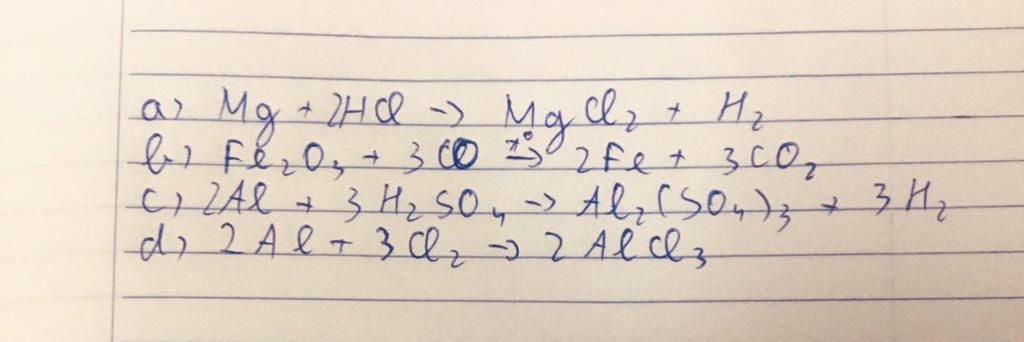 a) Mg + 2HCl → MgCl₂ + H₂
b) Fe₂O₃ + 3CO t°→ 2Fe + 3CO₂
c) 2Al + 3H₂SO₄ → Al₂(SO₄)₃ + 3H₂
d) 2Al + 3Cl₂ → 2AlCl₃